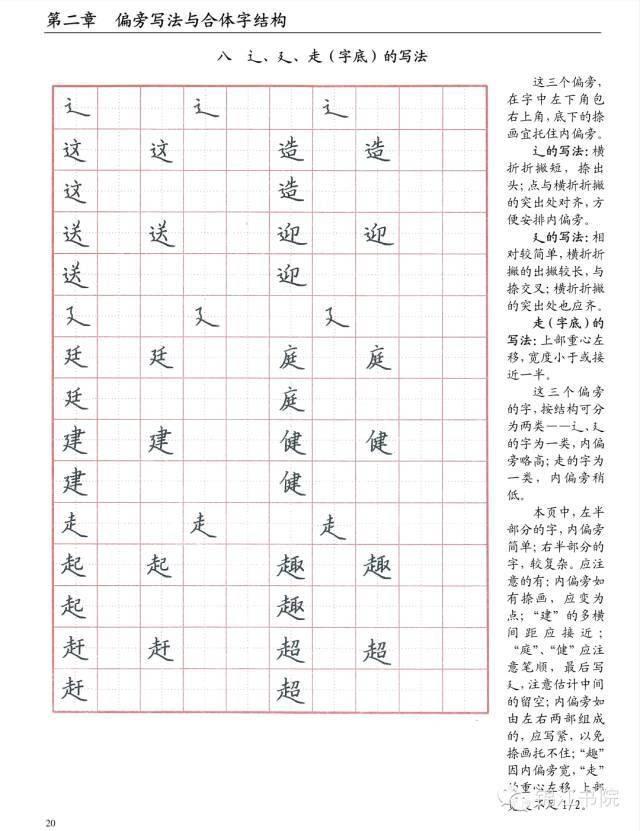 第二章 偏旁写法与合体字结构
八 辶、廴、走(字底)的写法
辶 辶 辶
这 这 造 造
这 造
送 送 迎 迎
送 迎
廴 廴 廴
廷 廷 庭 庭
廷 庭
建 建 健 健
建 健
走 走 走
起 起 趣 趣
起 趣
赶 赶 超 超
赶 超
这三个偏旁,
在字中左下角包
右上角,底下的捺
画宜托住内偏旁。
辶的写法:横
折折撇短,捺出
头;点与横折折撇
的突出处对齐,方
便安排内偏旁。
廴的写法:相
对较简单,横折折
撇的出撇较长,与
捺交叉;横折折撇
的突出处也应齐。
走(字底)的
写法:上部重心左
移,宽度小于或接
近一半。
这三个偏旁
的字,按结构可分
为两类——辶、廴
的字为一类,内偏
旁略高;走的字为
一类,内偏旁稍
低。
本页中,左半
部分的字,内偏旁
简单;右半部分的
字,较复杂。应注
意的有:内偏旁如
有捺画,应变为
点;“建”的多横
间距应接近;
“庭”、“健”应注
意笔顺,最后写
廴,注意估计中间
的留空;内偏旁如
由左右两部组成
的,应写紧,以免
捺画托不住;“趣”
因内偏旁宽,“走”
的重心左移,上部
宽度不足1/2。
书院
20